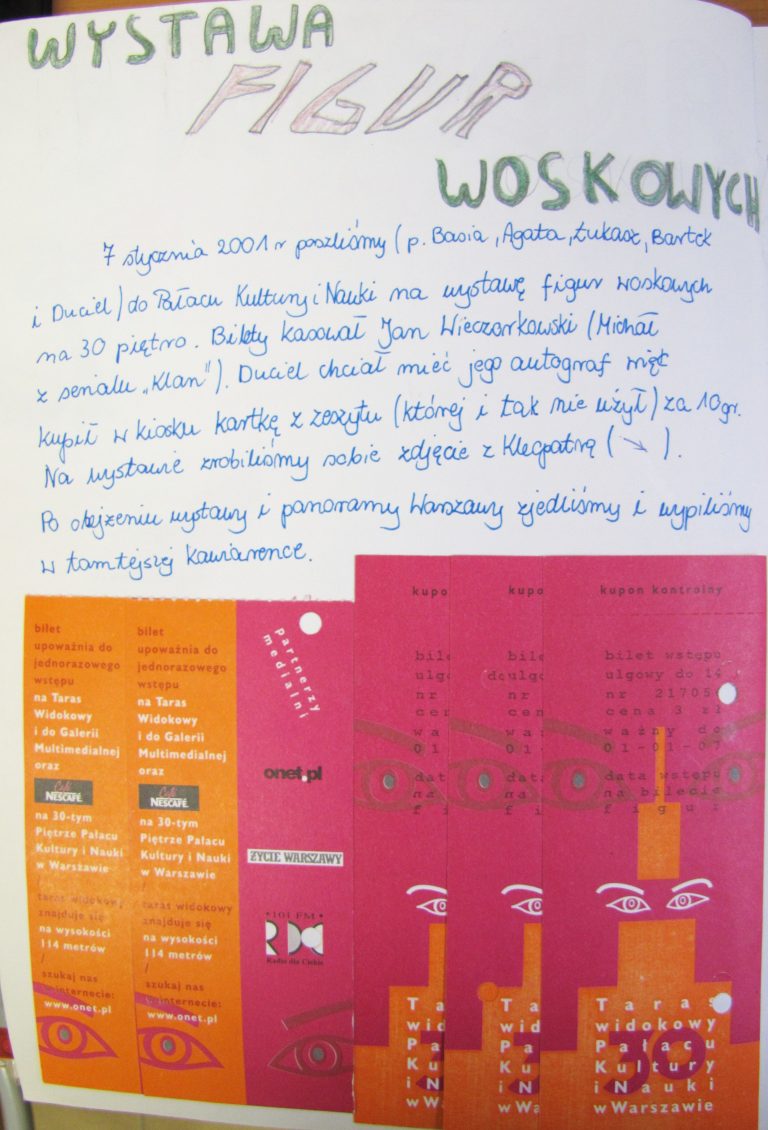 WYSTAWA
FIGUR
WOSKOWYCH
7 stycznia 2001 r poszliśmy (p. Basia, Agata, Łukasz, Bartek
i Duciel) do Pałacu Kultury i Nauki na wystawę figur woskowych
na 30 piętro. Bilety kasował Jan Wieczorkowski (Michał
z serialu „Klan"). Duciel chciał mieć jego autograf więc
kupił w kiosku kartkę z zeszytu (której i tak nie użył) za 10gr.
Na wystawie zrobiliśmy sobie zdjęcie z Kleopatrą (↘).
Po obejżeniu wystawy i panoramy Warszawy zjedliśmy i wypiliśmy
w tamtejszej kawiarence.
bilet
upoważnia do
jednorazowego
wstępu
na Taras
Widokowy
i do Galerii
Multimedialnej
oraz
Café
NESCAFÉ
na 30-tym
Piętrze Pałacu
Kultury i Nauki
w Warszawie
/
taras widokowy
znajduje się
na wysokości
114 metrów
/
szukaj nas
w internecie:
www.onet.pl
bilet
upoważnia do
jednorazowego
wstępu
na Taras
Widokowy
i do Galerii
Multimedialnej
oraz
Café
NESCAFÉ
na 30-tym
Piętrze Pałacu
Kultury i Nauki
w Warszawie
/
taras widokowy
znajduje się
na wysokości
114 metrów
/
szukaj nas
w internecie:
www.onet.pl
partnerzy
medialni
onet.pl
ŻYCIE WARSZAWY
101 FM
RDC
Radio dla Ciebie
kupo
bile
ulgo
nr
cen
wa
01
dat
na
fi
Ta
wid
Pa
Ku
i N
w Wa
kupo
bile
do ulgo
nr
cen
wa
01-
dat
na
fi
Ta
wid
Pa
Ku
i N
w Wa
kupon kontrolny
bilet wstępu
ulgowy do 14
nr 21705
cena 3 zł
ważny do
01-01-07
data wstępu
na bilecie
figur
30
Taras
widokowy
Pałacu
Kultury
i Nauki
w Warszawie